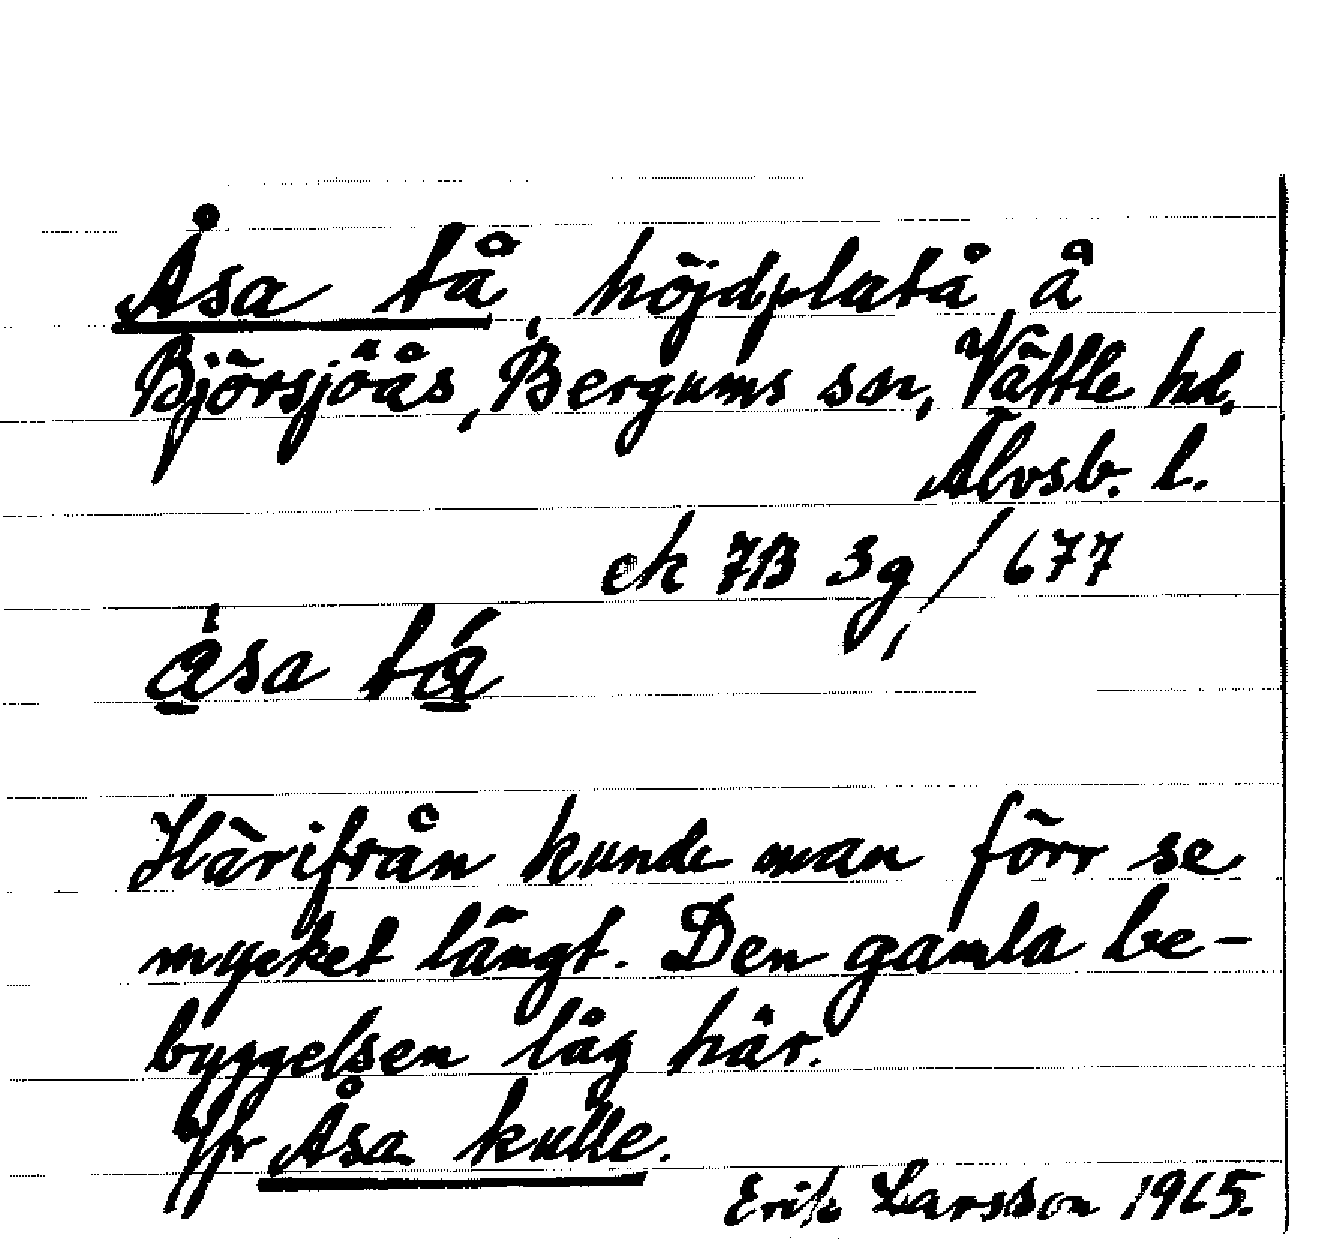 Åsa tå, höjdplatå å
Björsjöås, Bergums sn, Vättle hd,
Älvsb. l.
ek 7B 3g, / 677
åsa tå
Härifrån kunde man förr se
mycket långt. Den gamla be-
byggelsen låg här.
Jfr Åsa kulle.
Erik Larsson 1965.